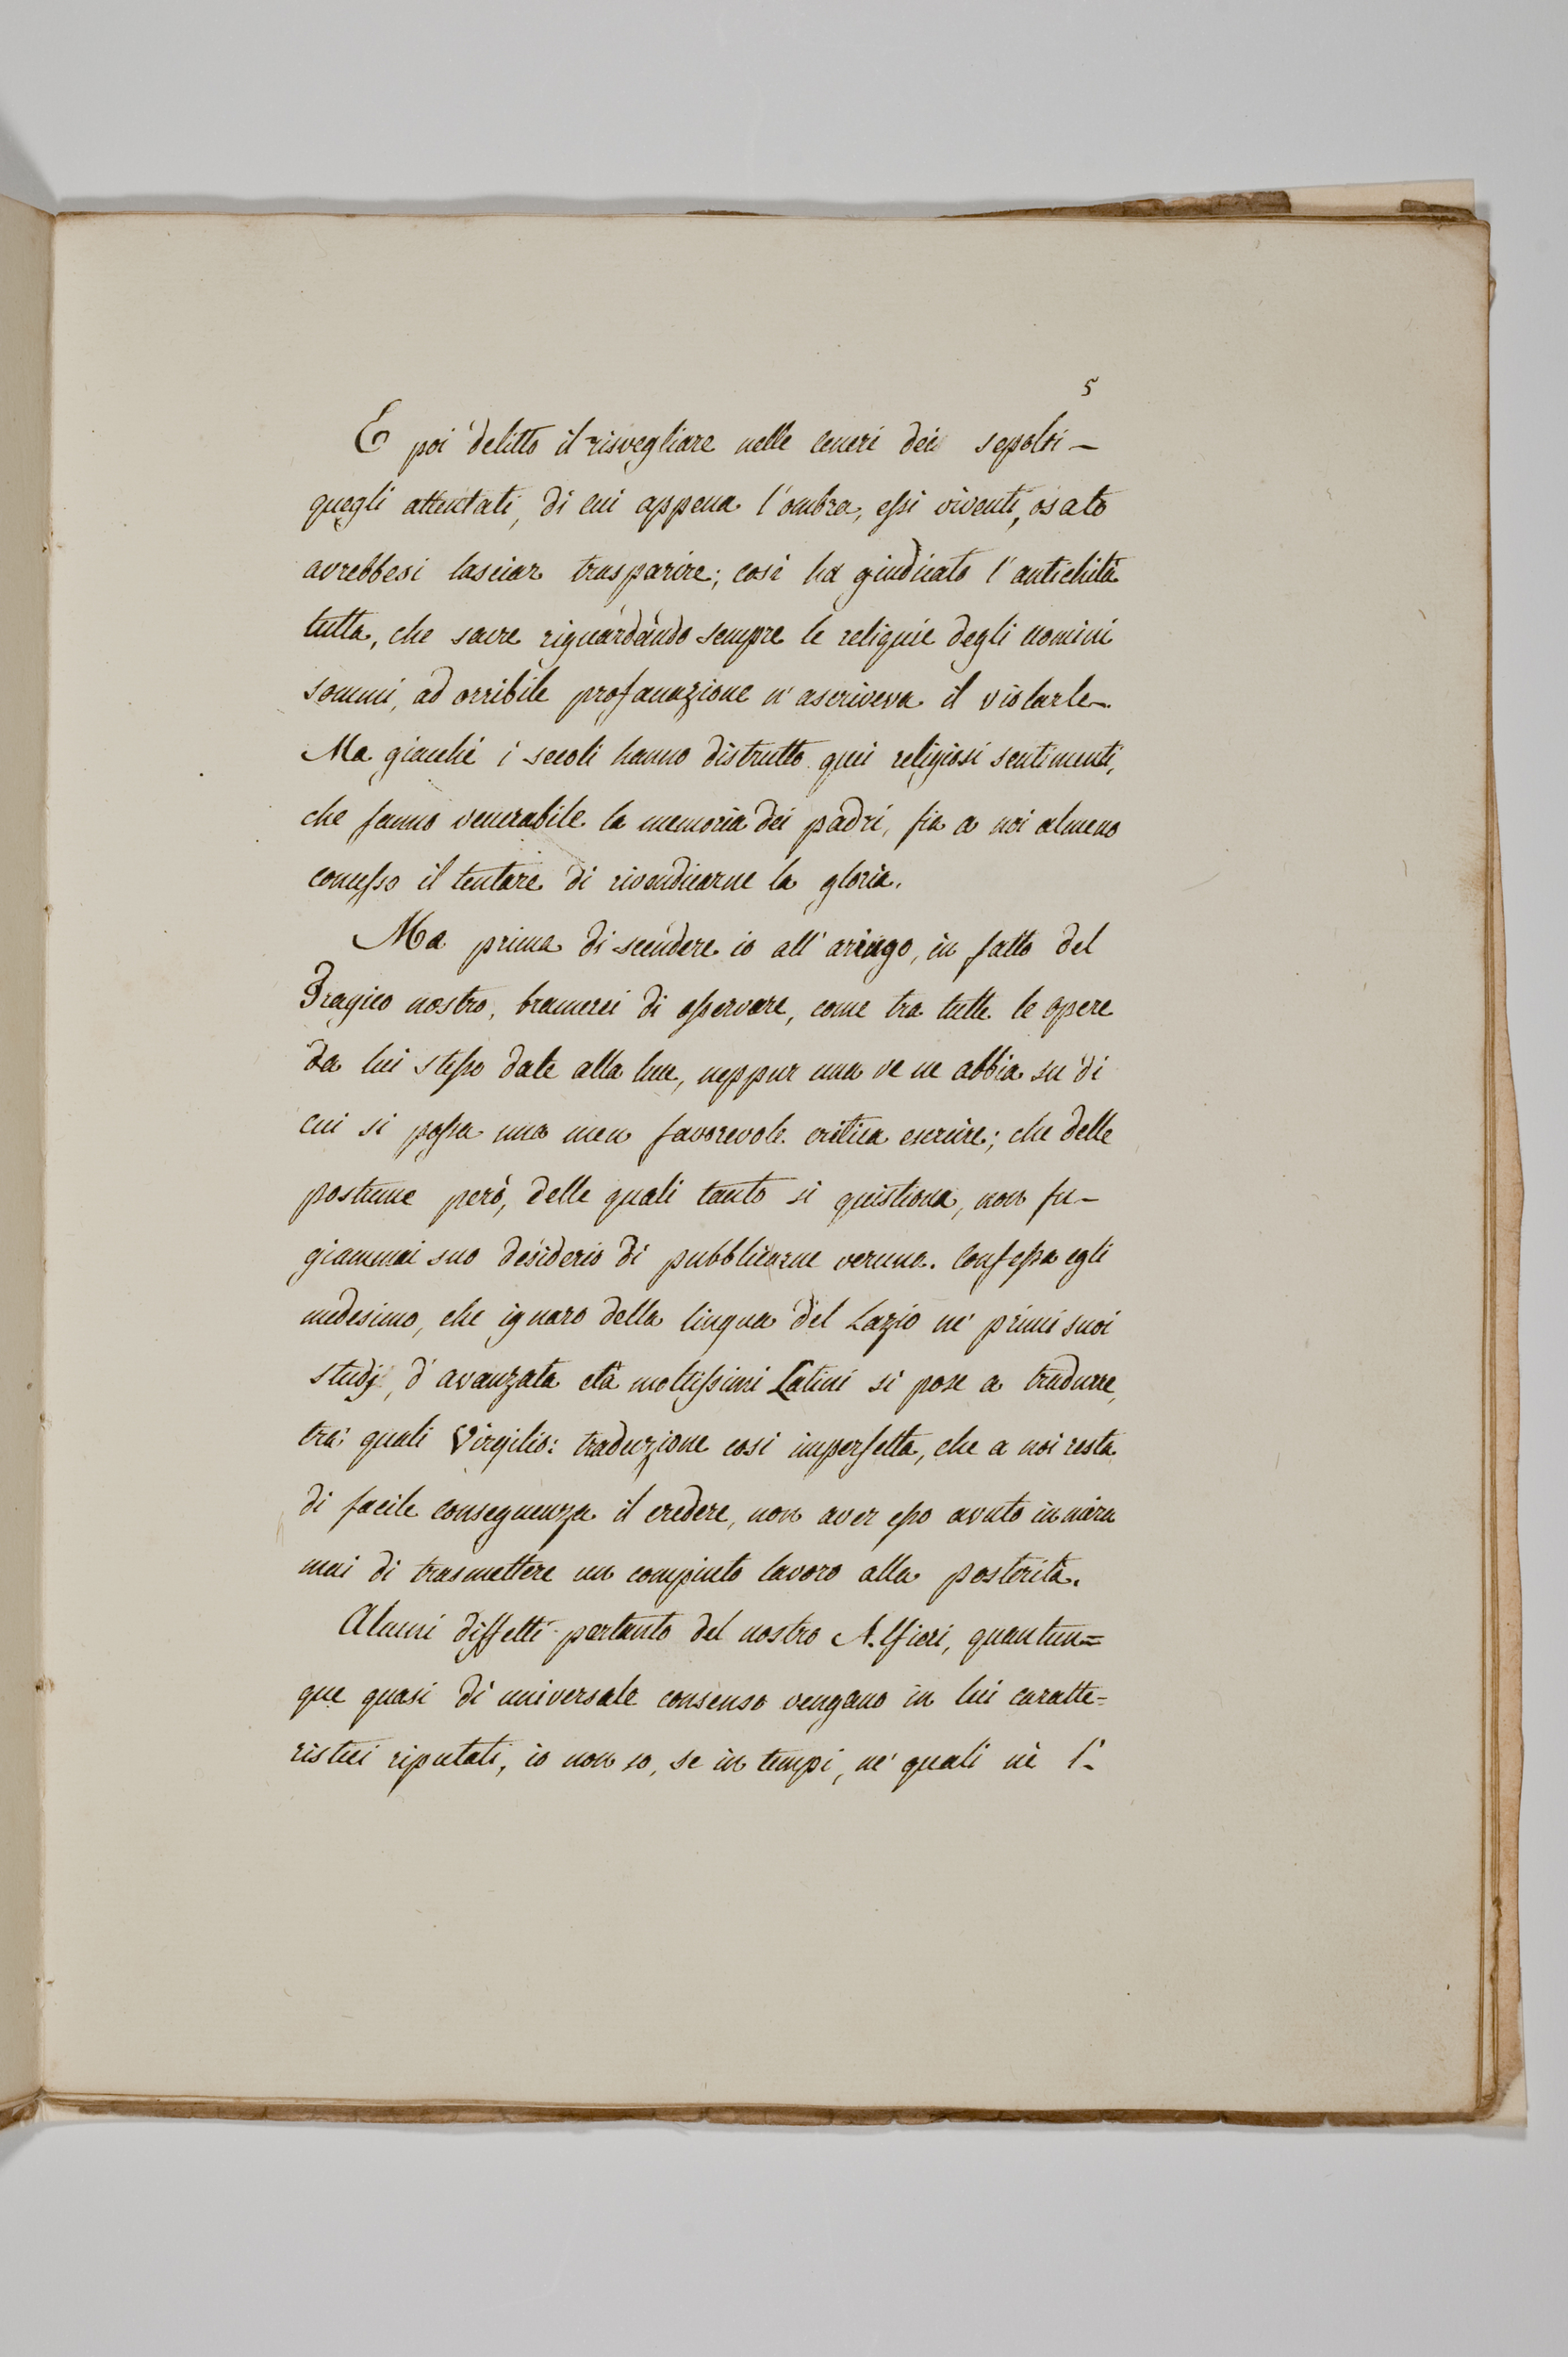 5
E poi delitto il risvegliare nelle ceneri dei sepolti -
quegli attentati, di cui appena l'ombra, essi viventi, osato
avrebbesi lasciar trasparire; così ha giudicato l'antichità
tutta, che sacre riguardando sempre le reliquie degli uomini
sommi, ad orribile profanazione n'ascriveva il violarle.
Ma giacchè i secoli hanno distrutto quei religiosi sentimenti,
che fanno venerabile la memoria dei padri, fia a noi almeno
concesso il tentare di rivendicarne la gloria.
Ma prima di scendere io all'aringo, in fatto del
Tragico nostro, bramerei di osservare, come tra tutte le opere
da lui stesso date alla luce, neppur una ve ne abbia su di
cui si possa una men favorevole critica escrire; che delle
postume però, delle quali tanto si quistiona, non fu -
giammai suo desiderio di pubblicarne veruna. Confessa egli
medesimo, che ignaro della lingua del Lazio ne' primi suoi
studj, d'avanzata età moltissimi Latini si pose a tradurre,
tra' quali Virgilio: traduzione così imperfetta, che a noi resta
di facile conseguenza il credere, non aver esso avuto in mira
mai di trasmettere un compiuto lavoro alla posterità.
Alcuni diffetti pertanto del nostro Alfieri, quantun=
que quasi di universale consenso vengano in lui caratte=
ristici riputati, io non so, se in tempi, ne' quali nè l'-